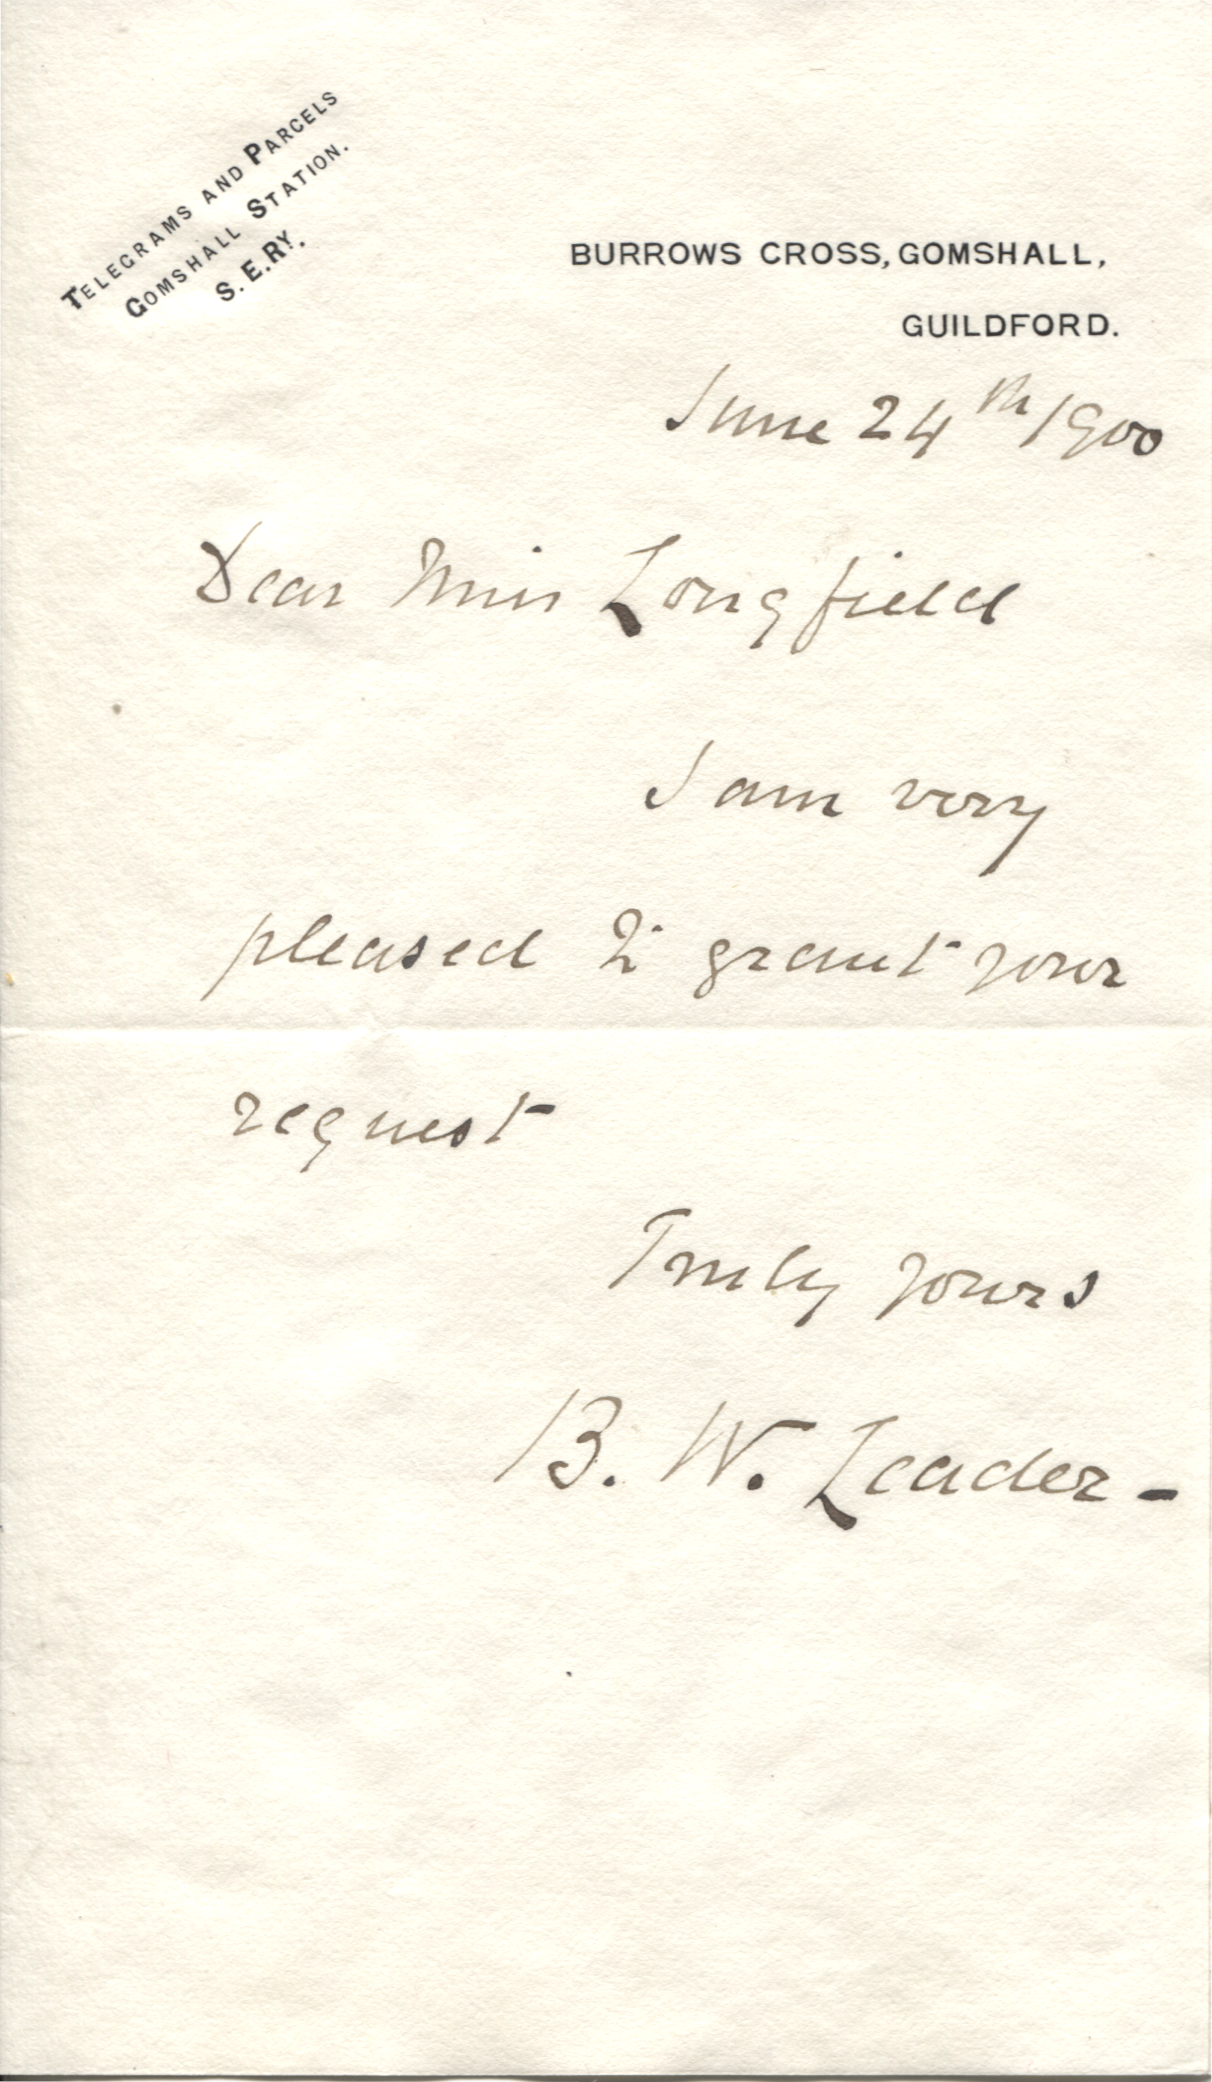 TELEGRAMS AND PARCELS
GOMSHALL STATION.
S.E.RY.
BURROWS CROSS, GOMSHALL,
GUILDFORD.
June 24th 1900
Dear Miss Longfield
I am very
pleased to grant your
request
Truly yours
B. W. Leader -